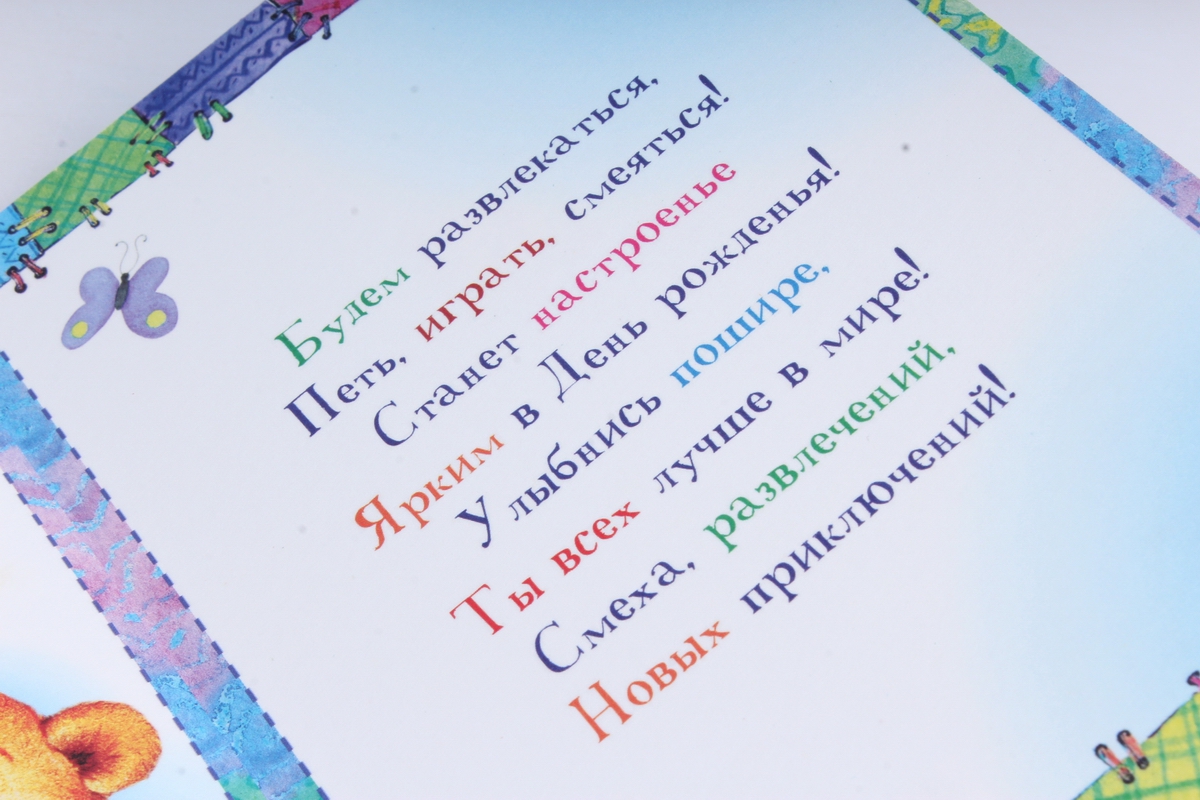 Будем развлекаться,
Петь, играть, смеяться!
Станет настроенье
Ярким в День рожденья!
Улыбнись пошире,
Ты всех лучше в мире!
Смеха, развлечений,
Новых приключений!